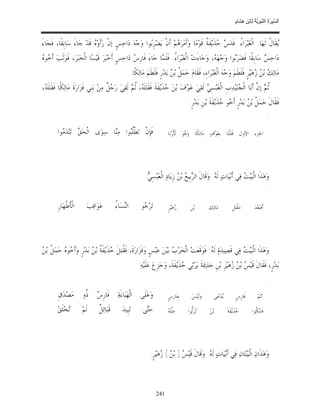 السّيرَةُ النَّبَوِيَّةُ لابْنِ هِشَامٍ
يُقَالُ لَهَا الْغَبْرَاءُ. فَدَسَّ حُذَيْفَةُ قَوْمًا وَأَمَرَهُمْ أَنْ يَضْرِبُوا وَجْهَ دَاحِسٍ إنْ رَأَوْهُ قَدْ جَاءَ سَابِقًا، فَجَاءَ
دَاحِسٌ سَابِقًا فَضَرَبُوا وَجْهَهُ، وَجَاءَتْ الْغَبْرَاءُ. فَلَمَّا جَاءَ فَارِسُ دَاحِسٍ أَخْبَرَ قَيْسًا الْخَبَرَ، فَوَثَبَ أَخُوهُ
مَالِكُ بْنُ زُهَيْرٍ فَلَطَمَ وَجْهَ الْغَبْرَاءِ، فَقَامَ حَمَلُ بْنُ بَدْرٍ فَلَطَمَ مَالِكًا.
ثُمَّ إنَّ أَبَا الْجُنَيْدِبِ الْعَبْسِيَّ لَقِيَ عَوْفَ بْنَ حُذَيْفَةَ فَقَتَلَهُ، ثُمَّ لَقِيَ رَجُلٌ مِنْ بَنِي فَزَارَةَ مَالِكًا فَقَتَلَهُ،
فَقَالَ حَمَلُ بْنُ بَدْرٍ أَخُو حُذَيْفَةَ بْنِ بَدْرٍ
:
الجزء الأول قَتَلْنَا بِعَوْفٍ مَالِكًا وَهْوَ ثَأْرُنَا فَإِنْ تَطْلُبُوا مِنَّا سِوَى الْحَقِّ تَنْدَمُوا
.
وَهَذَا الْبَيْتُ فِي أَبْيَاتٍ لَهُ. وَقَالَ الرَّبِيعُ بْنُ زِيَادٍ الْعَبْسِيُّ
:
أَفَبَعْدَ مَقْتَلِ مَالِكِ بْنِ زُهَيْرٍ تَرْجُو النِّسَاءُ عَوَاقِبَ الْأَطْهَارِ
.
وَهَذَا الْبَيْتُ فِي قَصِيدَةٍ لَهُ. فَوَقَعَتْ الْحَرْبُ بَيْنَ عَبْسٍ وَفَزَارَةَ، فَقُتِلَ حُذَيْفَةُ بْنُ بَدْرٍ وَأَخُوهُ حَمَلُ بْنُ
بَدْرٍ، فَقَالَ قَيْسُ بْنُ زُهَيْرِ بْنِ جَذِيمَةَ يَرْثِي حُذَيْفَةَ، وَجَزِعَ عَلَيْهِ
:
كَمْ فَارِسٍ يُدْعَى وَلَيْسَ بِفَارِسٍ وَعَلَى الْهَبَاءَةِ فَارِسٌ ذُو مَصْدَقٍ
فَابْكُوا حُذَيْفَةَ لَنْ تُرَثُّوا مِثْلَهُ حَتَّى تَبِيدَ قَبَائِلٌ لَمْ تُخْلَقْ
.
وَهَذَانِ الْبَيْتَانِ فِي أَبْيَاتٍ لَهُ. وَقَالَ قَيْسُ [ بْنُ ] زُهَيْرٍ
241